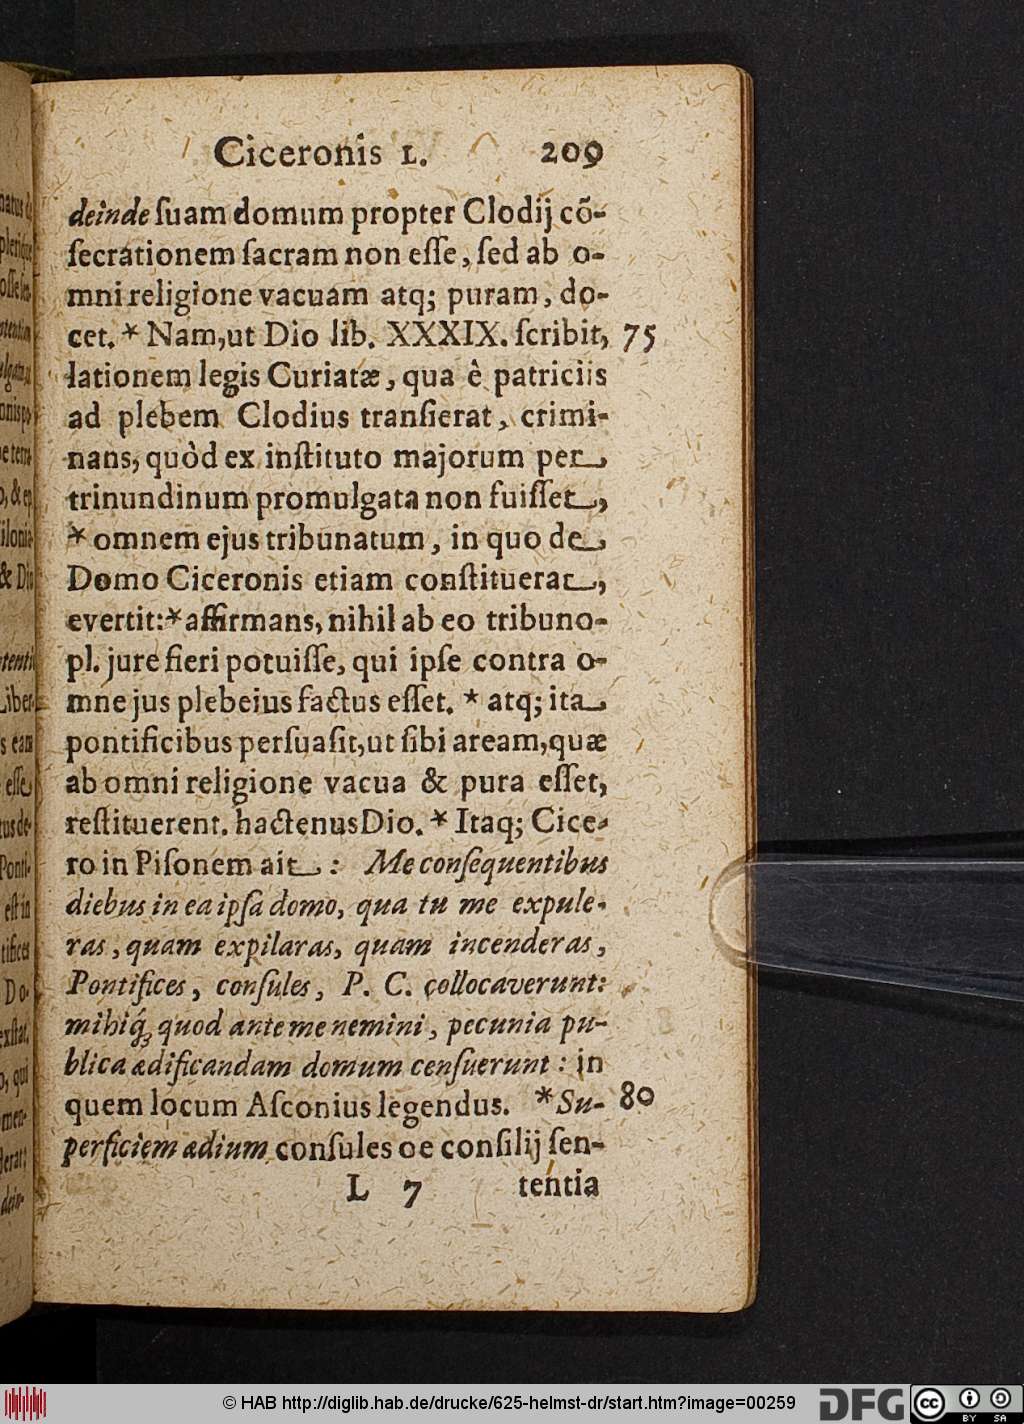 Ciceronis I. 209
deinde ſuam domum propter Clodij cõ-
ſecrationem ſacram non eſſe, ſed ab o-
mni religione vacuam atq; puram, do-
cet. * Nam, ut Dio lib. XXXIX. ſcribit, 75
lationem legis Curiatæ, qua è patriciis
ad plebem Clodius tranſierat, crimi-
nans, quòd ex inſtituto majorum per
trinundinum promulgata non fuiſſet,
* omnem ejus tribunatum, in quo de
Domo Ciceronis etiam conſtituerat,
evertit: * affirmans, nihil ab eo tribuno
pl. jure fieri potuiſſe, qui ipſe contra o-
mne jus plebeius factus eſſet. * atq; ita
pontificibus perſuaſit, ut ſibi aream, quæ
ab omni religione vacua & pura eſſet,
reſtituerent. hactenus Dio. * Itaq; Cice-
ro in Piſonem ait: Me conſequentibus
diebus in ea ipſa domo, qua tu me expule-
ras, quam expilaras, quam incenderas,
Pontifices, conſules, P. C. collocaverunt:
mihiq́; quod ante me nemini, pecunia pu-
blica ædificandam domum cenſuerunt: in
quem locum Aſconius legendus. * Su- 80
perficiem ædium conſules de conſilij ſen-
L 7 tentia
© HAB http://diglib.hab.de/drucke/625-helmst-dr/start.htm?image=00259
DFG
cc BY SA